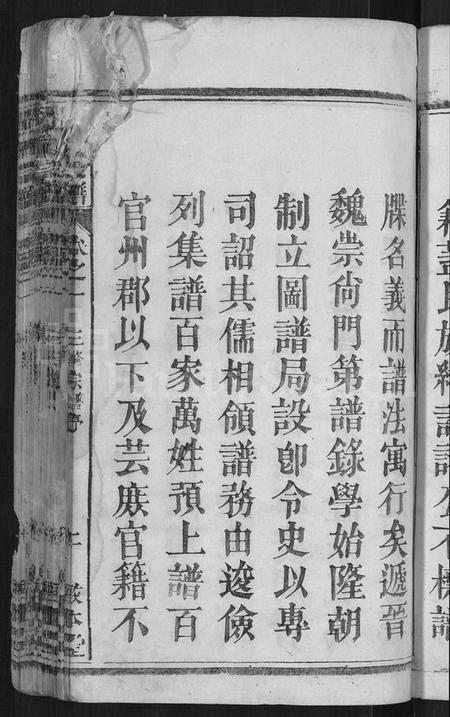 牒名義而譜法寓行矣遞晉
魏崇尙門第譜錄學始隆朝
制立圖譜局設郎令史以專
司詔其儒相領譜務由逡儉
列集譜百家萬姓預上譜百
官州郡以下及芸庻官籍不
卷之一
三修宗譜序